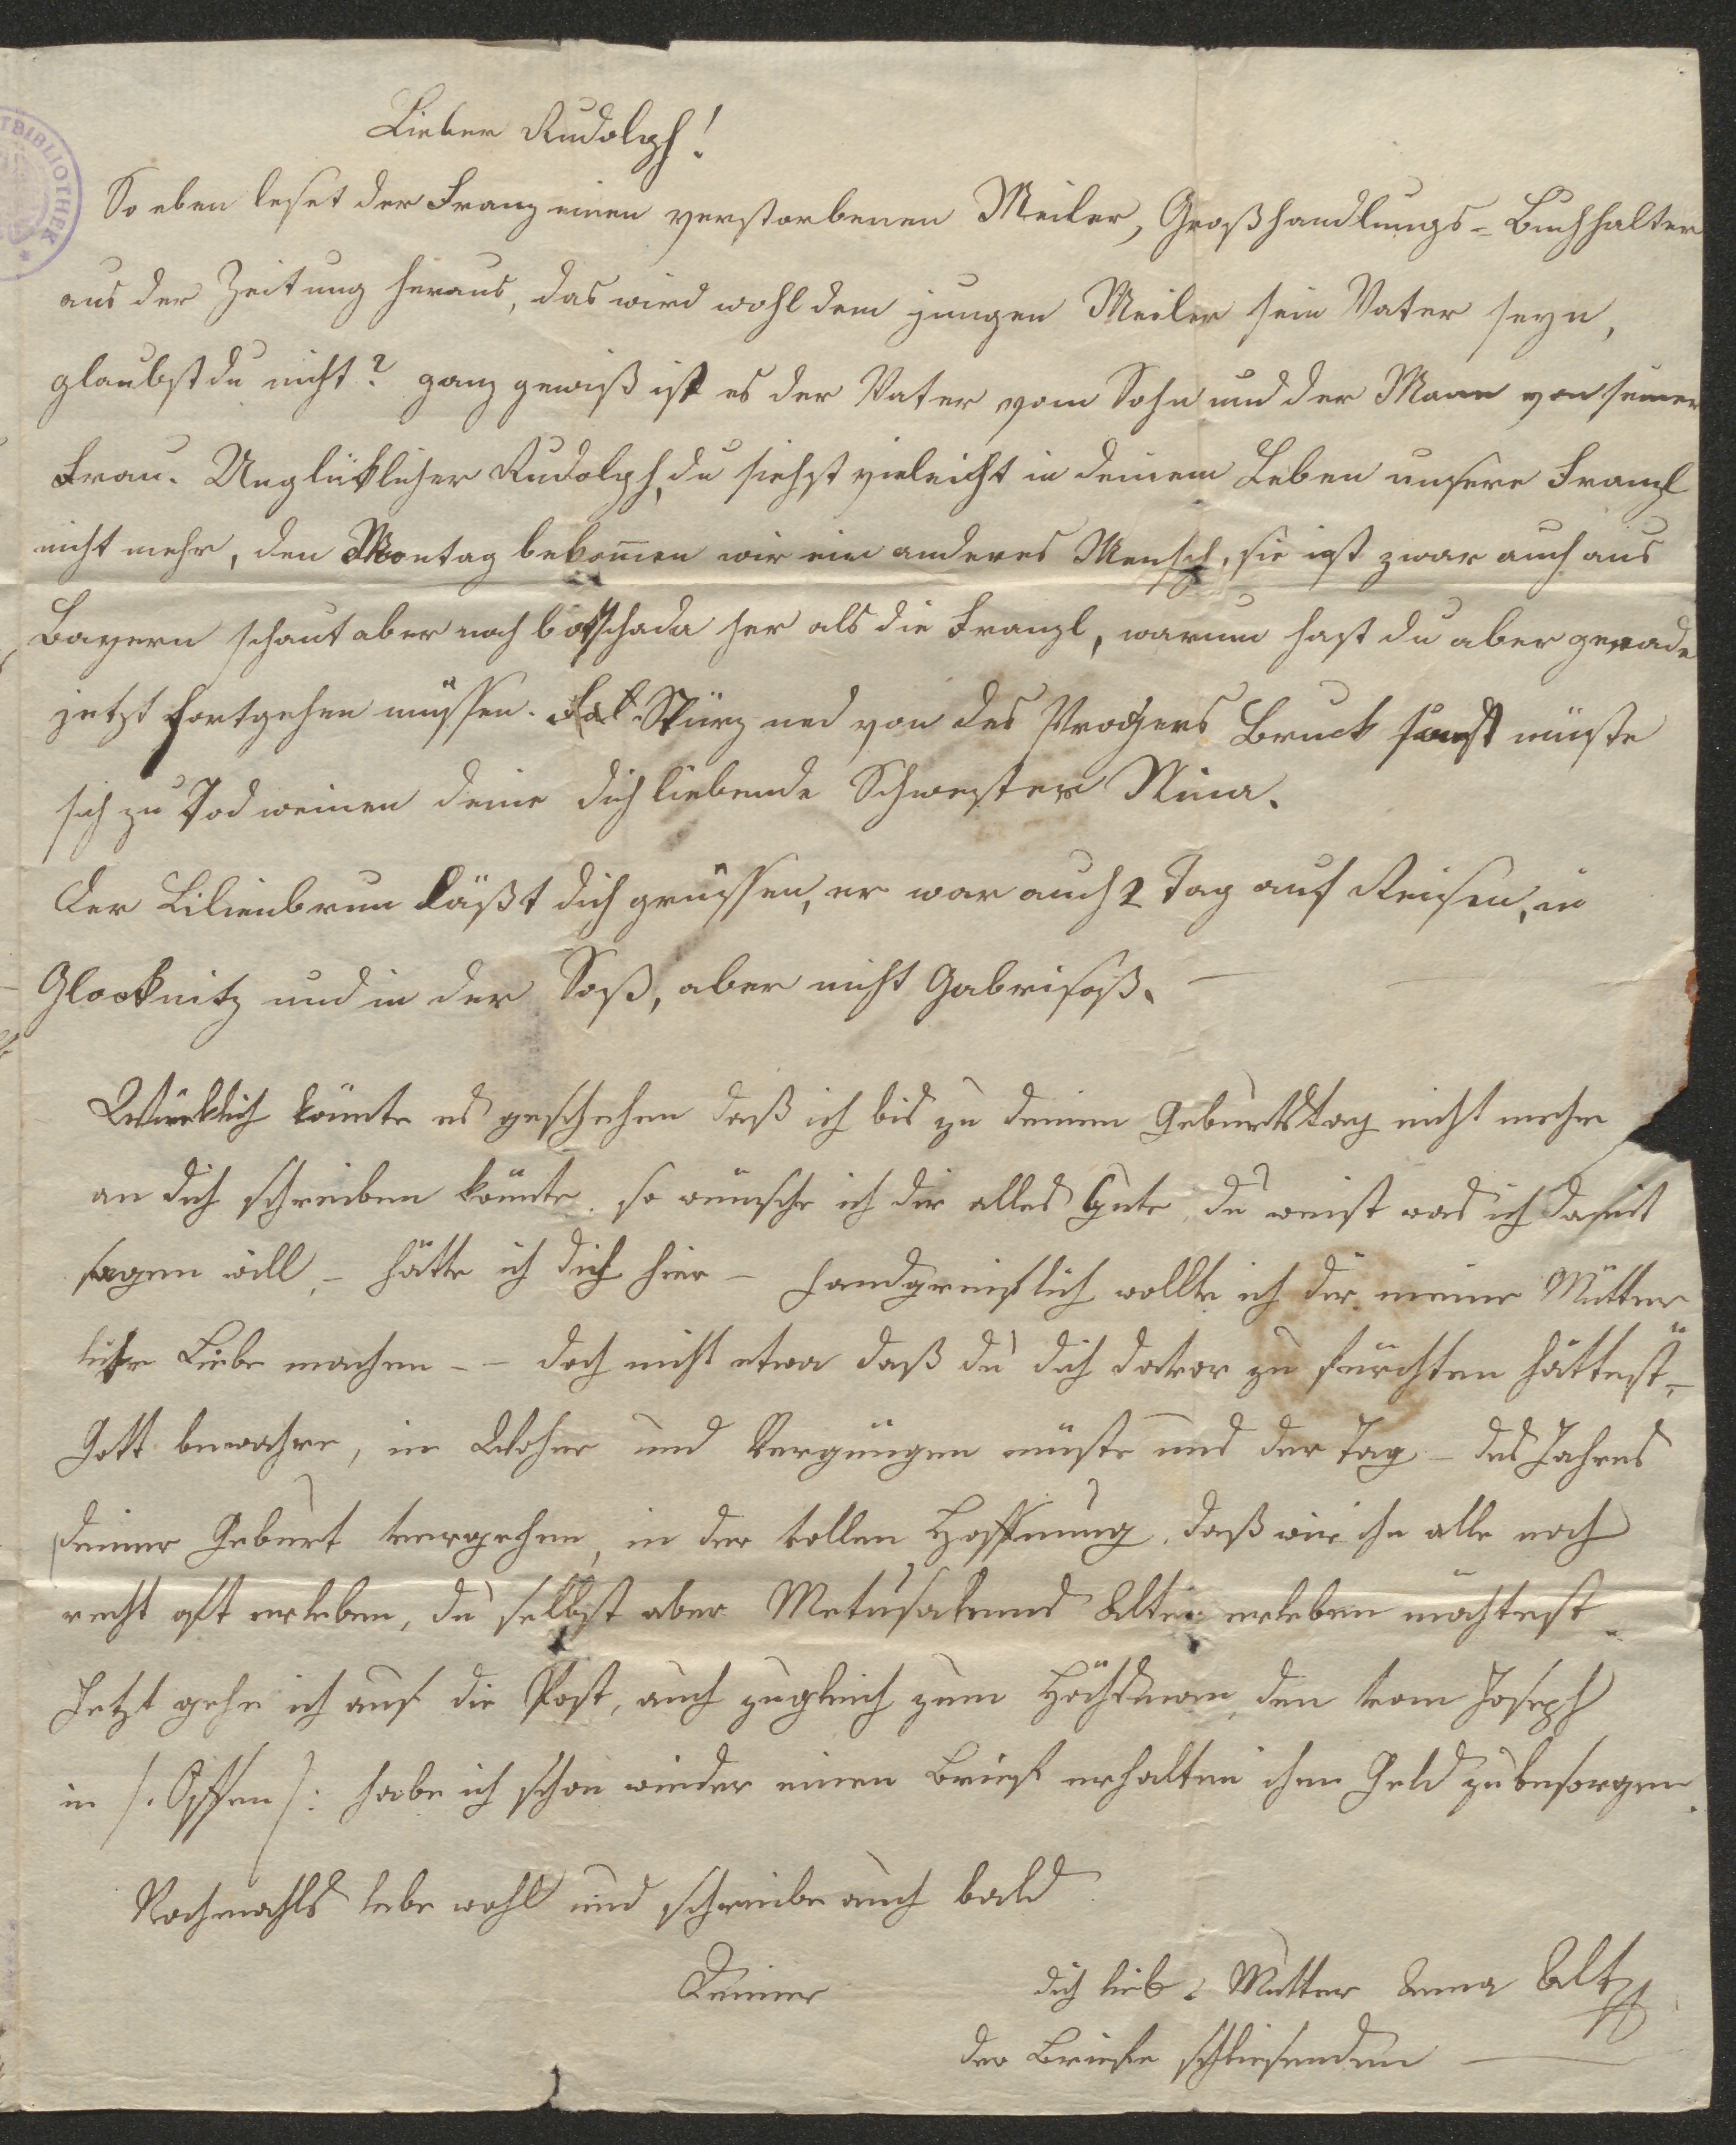 TBIBLIOTHEK *
Lieber Rudolph!
So eben leset der Franz einen verstorbenen Meiler, Großhandlungs=Buchhalter
aus der Zeitung heraus, das wird wohl dem jungen Meiler sein Vater seyn,
glaubst du nicht? ganz gewiß ist es der Vater vom Sohn und der Mann von seiner
Frau. Unglüklicher Rudolph, du siehst vieleicht in deinem Leben unsere Franzl
nicht mehr, den Montag bekom̅en wir ein anderes Mensch, sie ist zwar auch aus
Bayern schaut aber noch botschada her als die Franzl, warum hast du aber gerade
jetzt fortgehen müssen. Stürz ned von des Bruck sonst müste
sich zu Tod weinen deine dich liebende Schwester Nina.
Der Lilienbrun läßt dich grüssen, er war auch 2 Tag auf Reisen, in
Glocknitz und in der Soß, aber nicht
Würklich könnte es geschehen daß ich bis zu deinem Geburtstag nicht mehr
an dich schreiben könnte. so wünsche ich dir alles Gute, du weist was ich damit
sagen will, – hätte ich dich hier – handgreiflich wollte ich dir meine Mütter
liche Liebe machen – – doch nicht etwa daß du dich davor zu fürchten hättest, –
Gott bewahre, in und Vergnügen müste uns der Tag – des Jahres
deiner Geburt vergehen, in der vollen Hoffnung, daß wir ihn alle noch
recht oft erleben, du selbst aber Metusalems Alter erleben möchtest.
Jetzt gehe ich auf die Post, auch zugleich zum den vom Joseph
in /: Offen :/ habe ich schon wieder einen Brief erhalten ihm Geld zu besorgen.
Nochmahls lebe wohl und schreibe auch bald
Deiner dich lieb: Mutter Anna Alt
der Briefe schliesenden —